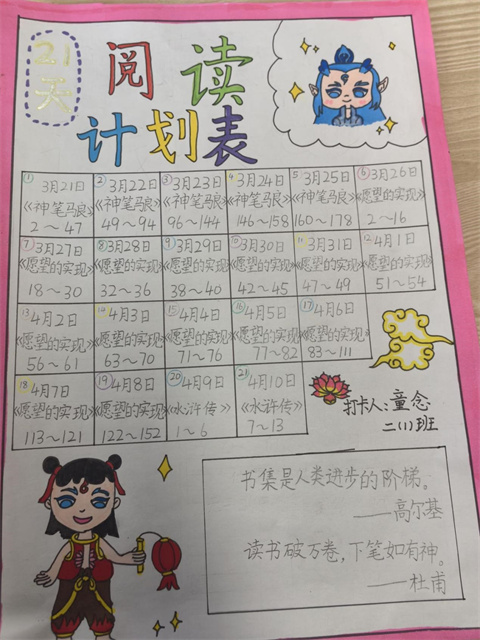 21天
阅读
计划表
① 3月21日
《神笔马良》
2～47
② 3月22日
《神笔马良》
49～94
③ 3月23日
《神笔马良》
96～144
4 3月24日
《神笔马良》
146～158
5 3月25日
《神笔马良》
160～178
⑥ 3月26日
《愿望的实现》
2～16
⑦ 3月27日
《愿望的实现》
18～30
⑧ 3月28日
《愿望的实现》
32～36
⑨ 3月29日
《愿望的实现》
38～40
⑩ 3月30日
《愿望的实现》
42～45
11 3月31日
《愿望的实现》
47～49
12 4月1日
《愿望的实现》
51～54
13 4月2日
《愿望的实现》
56～61
14 4月3日
《愿望的实现》
63～70
15 4月4日
《愿望的实现》
71～76
16 4月5日
《愿望的实现》
77～82
17 4月6日
《愿望的实现》
83～111
18 4月7日
《愿望的实现》
113～121
19 4月8日
《愿望的实现》
122～152
20 4月9日
《水浒传》
1～6
21 4月10日
《水浒传》
7～13
打卡人:童念
二(1)班
书集是人类进步的阶梯。
——高尔基
读书破万卷,下笔如有神。
——杜甫